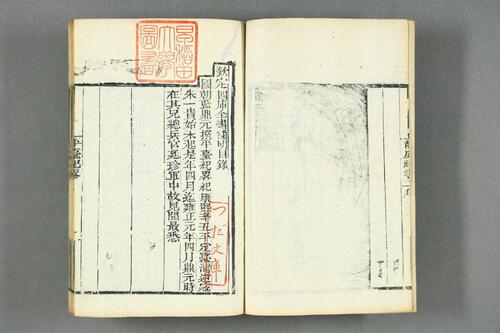 早稻田
大學
圖書
欽定四庫全書簡明目錄
國朝藍鼎元撰平臺紀畧紀康熙辛丑平定臺灣逆寇
朱一貴始末起是年四月迄雍正元年四月鼎元時
在其兄總兵官廷珍軍中故見聞最悉
平臺紀畧